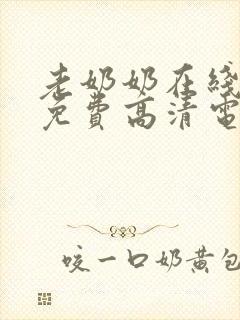 老奶奶在线
免费高清电
咬一口奶黄包